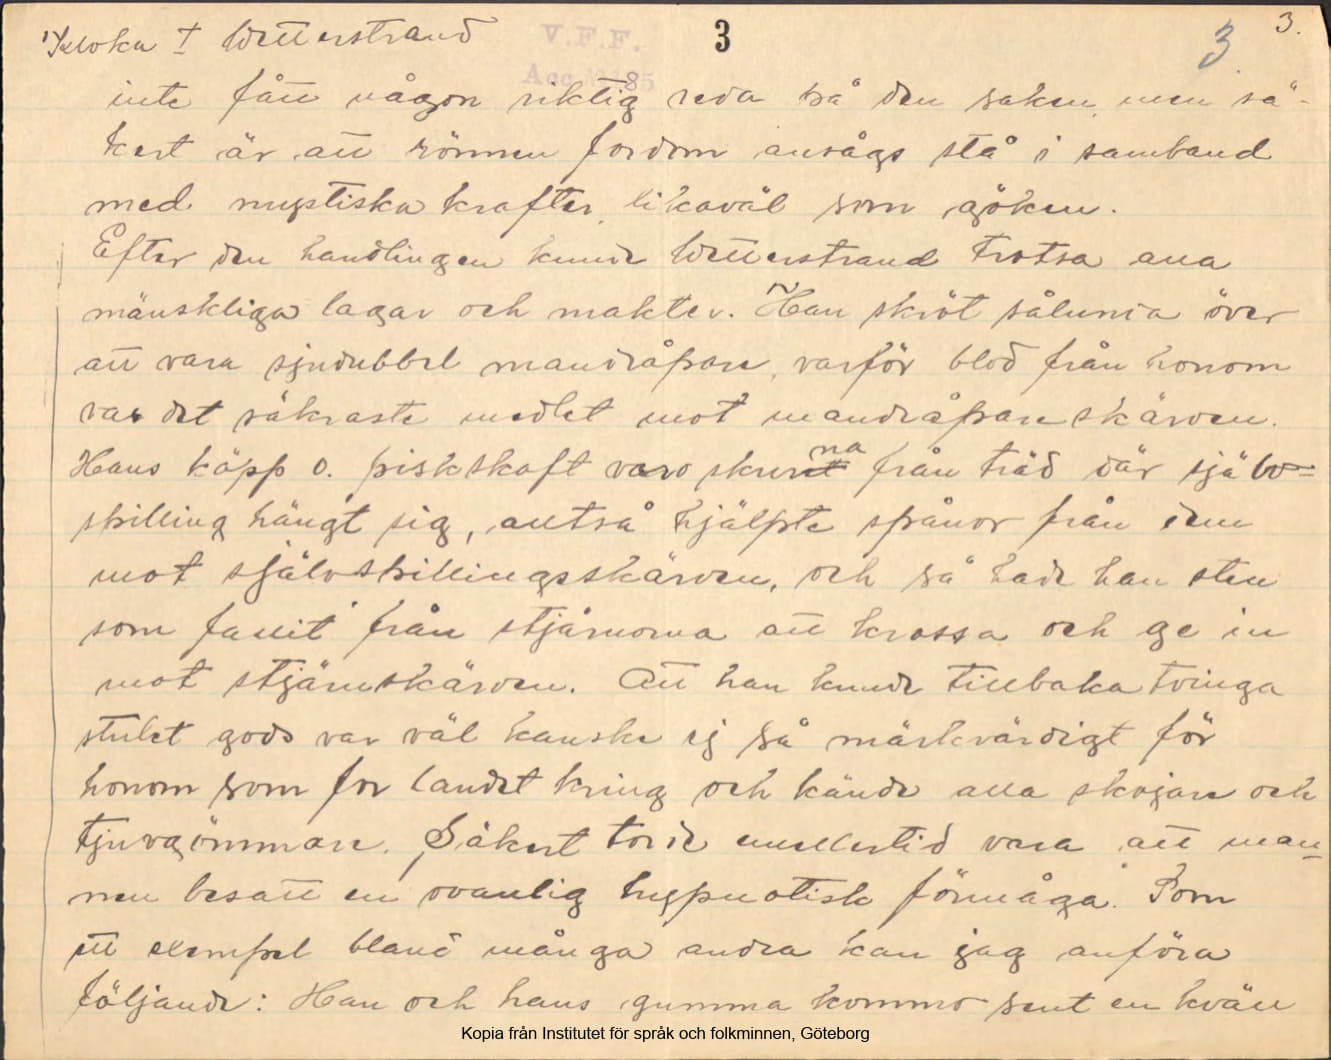 Kloka ± Wetterstrand
V.F.F.
3
3
3.
inte fått någon riktig reda på den saken, men sä-
kert är att rönnen fordom ansågs stå i samband
med mystiska krafter, likaväl som göken.
Efter den handlingen kunde Wetterstrand trotsa alla
mänskliga lagar och makter. Han skröt sålunda över
att vara sjudubbel mandråpare, varför blod från honom
var det säkraste medlet mot mandråpareskärven.
Hans käpp o. piskskaft voro skurna från träd där själv-
spilling hängt sig, alltså hjälpte spånor från dem
mot självspillingsskärven, och så hade han sten
som fallit från stjärnorna att krossa och ge in
mot stjärnskärven. Att han kunde tillbaka tvinga
stulet gods var väl kanske ej så märkvärdigt för
honom som for landet kring och kände alla skojare och
tjuvgömmare. Säkert torde emellertid vara att man-
nen besatt en ovanlig hypnotisk förmåga. Som
ett exempel bland många andra kan jag anföra
följande: Han och hans gumma kommo sent en kväll
Kopia från Institutet för språk och folkminnen, Göteborg